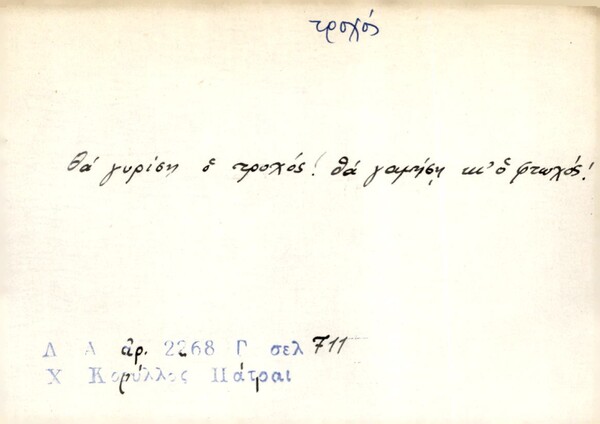 τροχός
θά γυρίση ὁ τροχός! θά γαμήσῃ κι' ὁ φτωχός!
Λ Α ἀρ. 2268 Γ σελ 711
Χ Κορύλλος Πάτραι